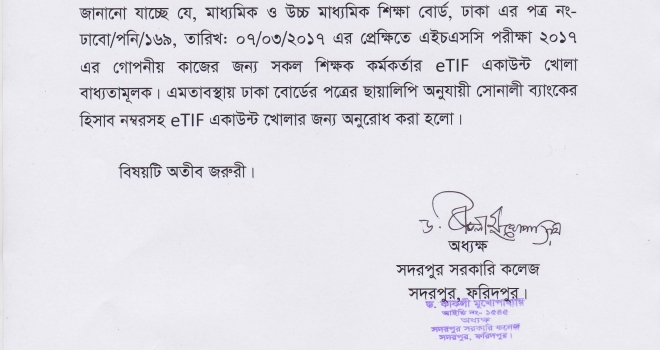 জানানো যাচ্ছে যে, মাধ্যমিক ও উচ্চ মাধ্যমিক শিক্ষা বোর্ড, ঢাকা এর পত্র নং-
ঢাবো/পনি/১৬৯, তারিখ: ০৭/০৩/২০১৭ এর প্রেক্ষিতে এইচএসসি পরীক্ষা ২০১৭
এর গোপনীয় কাজের জন্য সকল শিক্ষক কর্মকর্তার eTIF একাউন্ট খোলা
বাধ্যতামূলক। এমতাবস্থায় ঢাকা বোর্ডের পত্রের ছায়ালিপি অনুযায়ী সোনালী ব্যাংকের
হিসাব নম্বরসহ eTIF একাউন্ট খোলার জন্য অনুরোধ করা হলো।
বিষয়টি অতীব জরুরী।
ড.
অধ্যক্ষ
সদরপুর সরকারি কলেজ
সদরপুর, ফরিদপুর।
ড. কাকলী মুখোপাধ্যায়
আইডি নং-
অধ্যক্ষ
সদরপুর সরকারি কলেজ
সদরপুর, ফরিদপুর।